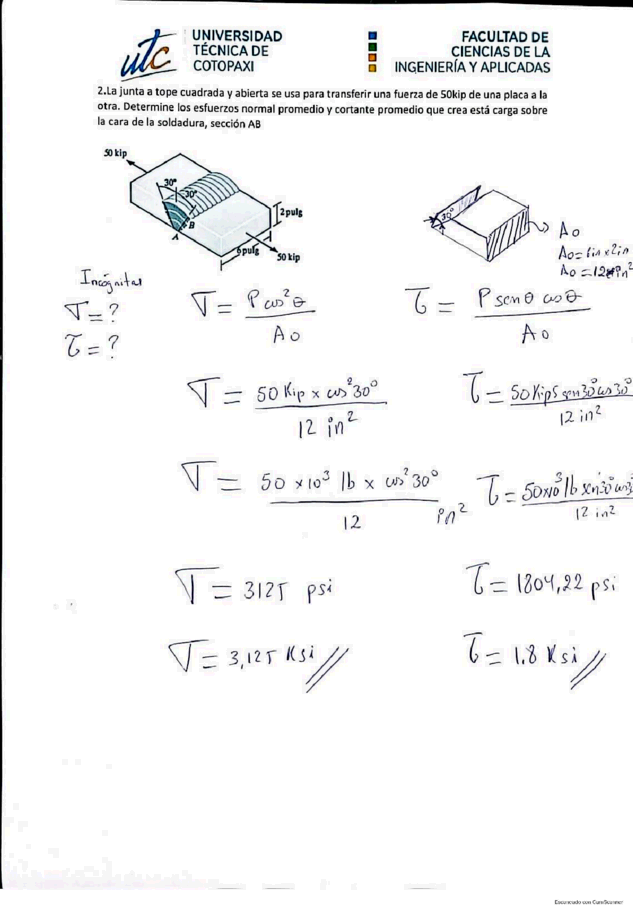 utc UNIVERSIDAD TÉCNICA DE COTOPAXI
FACULTAD DE CIENCIAS DE LA INGENIERÍA Y APLICADAS
2.La junta a tope cuadrada y abierta se usa para transferir una fuerza de 50kip de una placa a la
otra. Determine los esfuerzos normal promedio y cortante promedio que crea está carga sobre
la cara de la soldadura, sección AB
50 kip
30°
30°
2pulg
B
A
6pulg
50 kip
30°
Ao
Ao = 6in x 2in
Ao = 12 in²
Incógnitas
σ = ?
τ = ?
σ = P cos²θ / Ao
τ = P senθ cosθ / Ao
σ = 50 Kip x cos²30° / 12 in²
τ = 50 Kips sen30° cos30° / 12 in²
σ = 50 x10³ lb x cos²30° / 12 in²
τ = 50x10³ lb sen30° cos3 / 12 in²
σ = 3125 psi
τ = 1804,22 psi
σ = 3,125 Ksi //
τ = 1.8 Ksi //
Escaneado con CamScanner